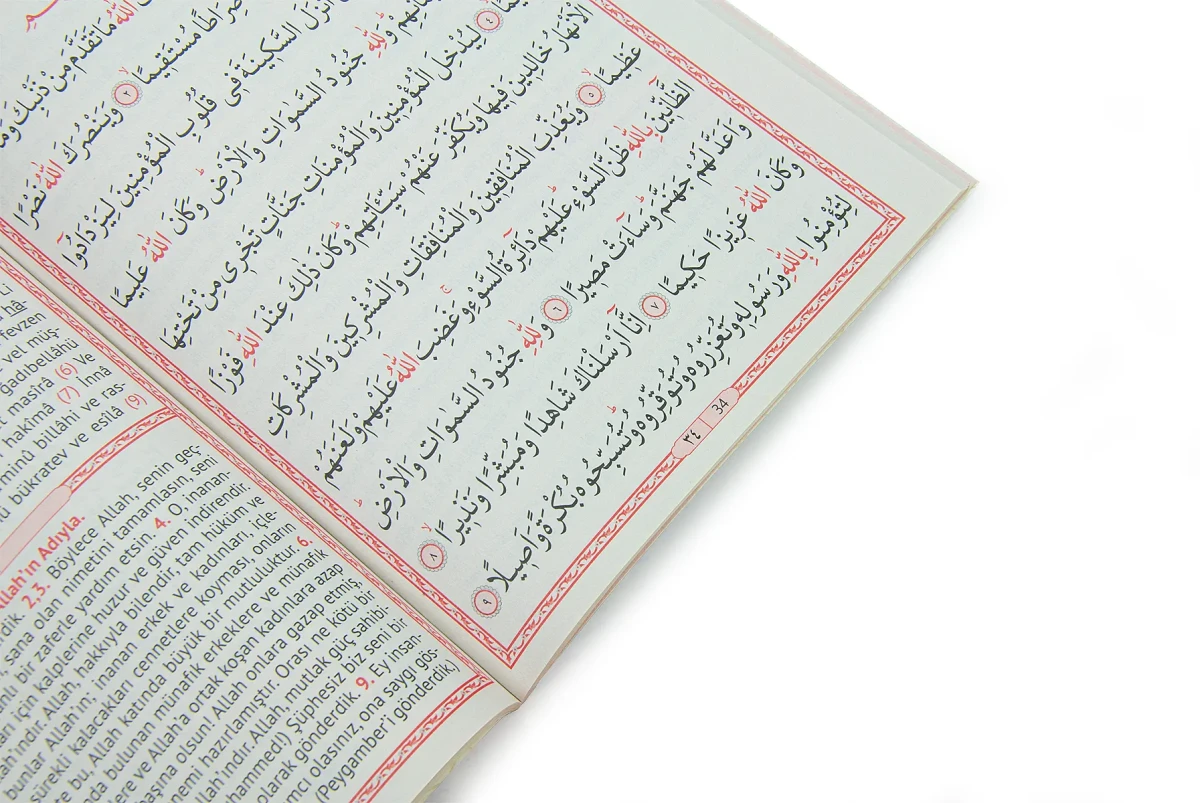 اللّٰهُ مَا تَقَدَّمَ مِنْ ذَنْبِكَ وَمَا
صِرَاطًا مُسْتَق۪يمًا ﴿٢﴾ وَيَنْصُرَكَ اللّٰهُ نَصْرًا
اَنْزَلَ السَّك۪ينَةَ ف۪ى قُلُوبِ الْمُؤْمِن۪ينَ لِيَزْدَادُوا
وَلِلّٰهِ جُنُودُ السَّمٰوَاتِ وَالْاَرْضِ وَكَانَ اللّٰهُ عَل۪يمًا
﴿٤﴾ لِيُدْخِلَ الْمُؤْمِن۪ينَ وَالْمُؤْمِنَاتِ جَنَّاتٍ تَجْر۪ى مِنْ تَحْتِهَا
الْاَنْهَارُ خَالِد۪ينَ ف۪يهَا وَيُكَفِّرَ عَنْهُمْ سَيِّـَٔاتِهِمْ وَكَانَ ذٰلِكَ عِنْدَ اللّٰهِ فَوْزًا
عَظ۪يمًا ﴿٥﴾ وَيُعَذِّبَ الْمُنَافِق۪ينَ وَالْمُنَافِقَاتِ وَالْمُشْرِك۪ينَ وَالْمُشْرِكَاتِ
الظَّٓانّ۪ينَ بِاللّٰهِ ظَنَّ السَّوْءِ عَلَيْهِمْ دَٓائِرَةُ السَّوْءِ وَغَضِبَ اللّٰهُ عَلَيْهِمْ وَلَعَنَهُمْ
وَاَعَدَّ لَهُمْ جَهَنَّمَ وَسَٓاءَتْ مَص۪يرًا ﴿٦﴾ وَلِلّٰهِ جُنُودُ السَّمٰوَاتِ وَالْاَرْضِ
وَكَانَ اللّٰهُ عَز۪يزًا حَك۪يمًا ﴿٧﴾ اِنَّٓا اَرْسَلْنَاكَ شَاهِدًا وَمُبَشِّرًا وَنَذ۪يرًا ﴿٨﴾
لِتُؤْمِنُوا بِاللّٰهِ وَرَسُولِه۪ وَتُعَزِّرُوهُ وَتُوَقِّرُوهُ وَتُسَبِّحُوهُ بُكْرَةً وَاَص۪يلًا ﴿٩﴾
٣٤ 34
fevzen
vel müş-
ğadıbellâhü
masîrâ (6) Ve
hakîmâ (7) İnnâ
minû billâhi ve ras-
bükratev ve esîlâ (9)
Allah'ın Adıyla.
2,3. Böylece Allah, senin geç-
sana olan nimetini tamamlasın, seni
bir zaferle yardım etsin. 4. O, inanan-
için kalplerine huzur ve güven indirendir.
Allah, hakkıyla bilendir, tam hüküm ve
bunlar Allah'ın; inanan erkek ve kadınları, içle-
sürekli kalacakları cennetlere koyması, onların
bu, Allah katında büyük bir mutluluktur. 6.
bulunan münafık erkeklere ve münafık
ve Allah'a ortak koşan kadınlara azap
başına olsun! Allah onlara gazap etmiş,
hazırlamıştır. Orası ne kötü bir
Allah, mutlak güç sahibi-
Şüphesiz biz seni bir
olarak gönderdik. 9. Ey insan-
olasınız, ona saygı gös-
(Peygamber'i gönderdik,)